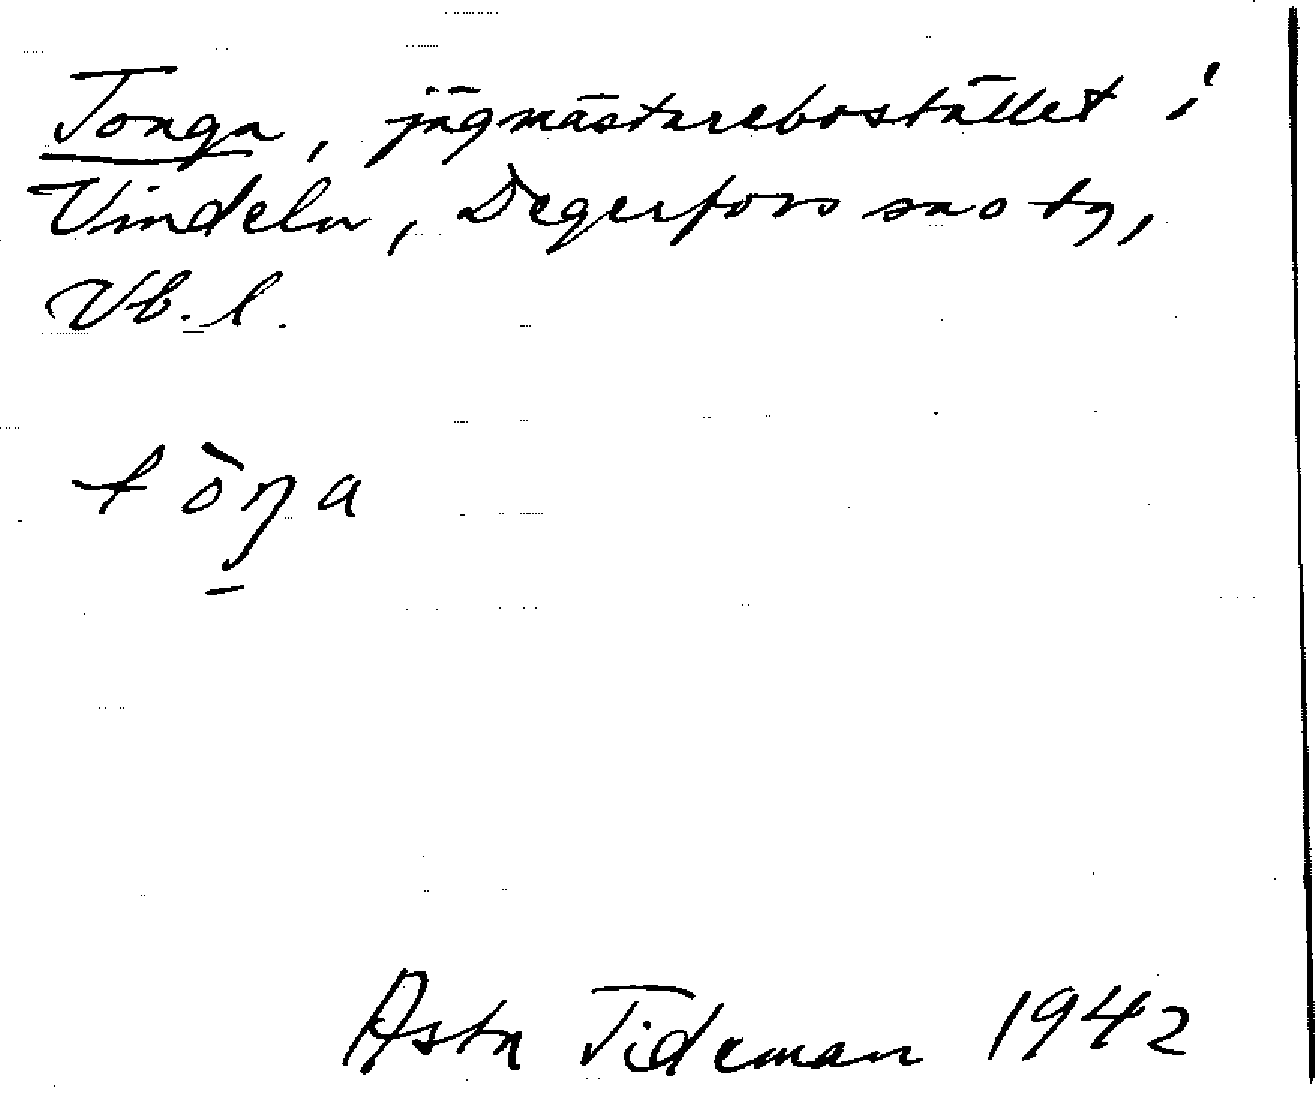 Tonga, jägmästarebostället i
Vindeln, Degerfors sn o tg,
Vb. l.
tòŋa
Asta Tideman 1942